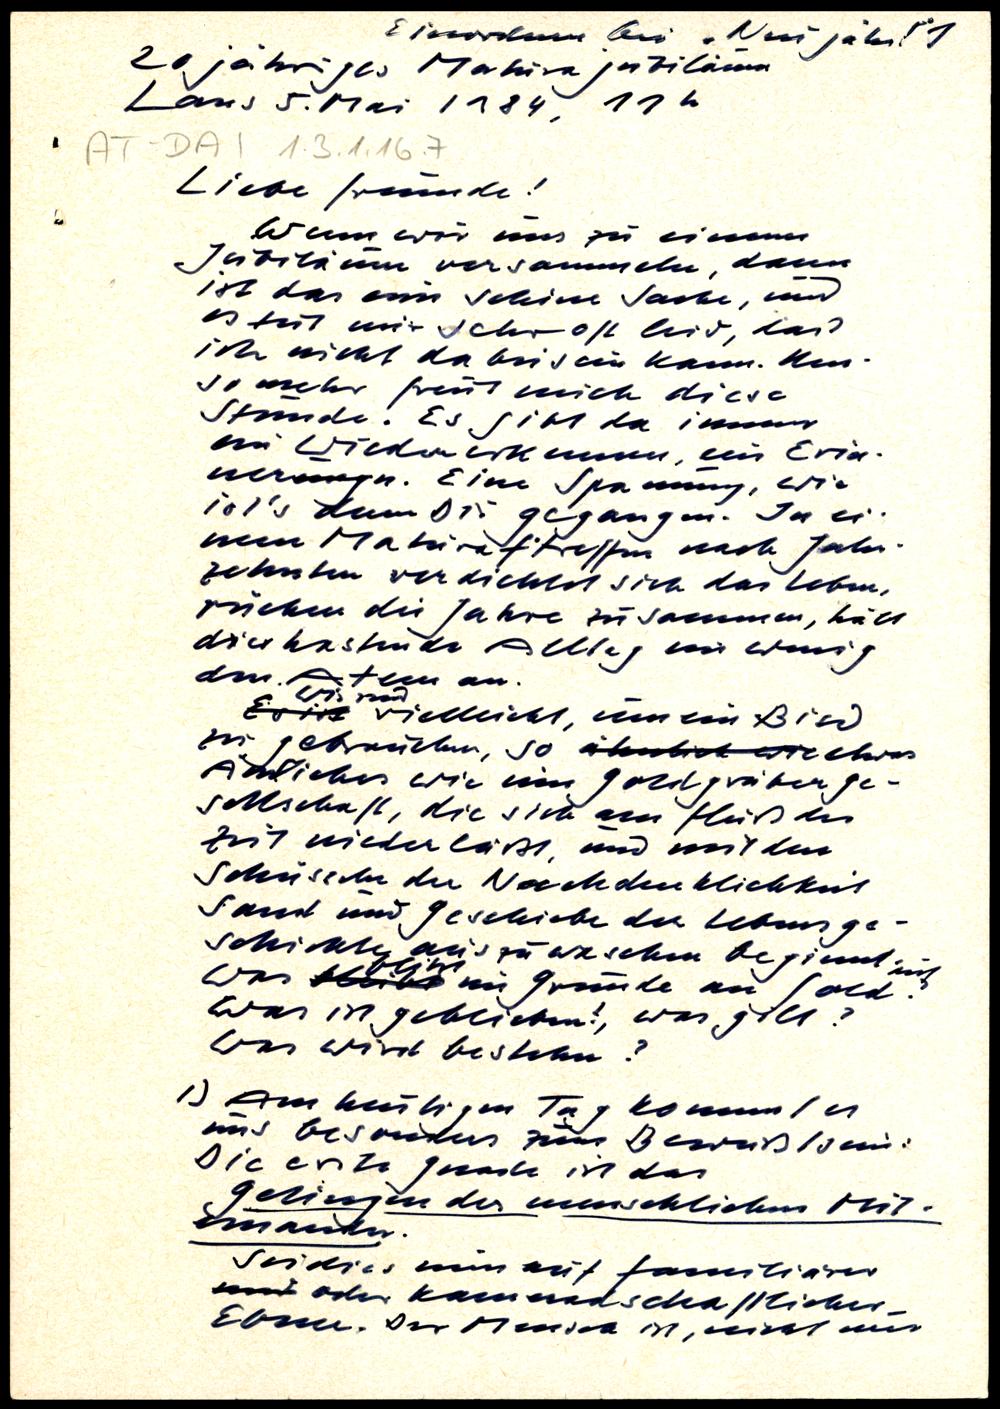 Einordnen bei "Neujahr!"
20 jähriges Maturajubiläum
Lans 5. Mai 1984, 11 h
AT-DAI 1.3.1.16.7
Liebe Freunde!
Wenn wir uns zu einem
Jubiläum versammeln, dann
ist das eine schöne Sache, und
es tut mir sehr oft leid, daß
ich nicht dabeisein kann. Um-
so mehr freut mich diese
Stunde. Es gibt da immer
ein Wiedererkennen, ein Erin-
nern. Eine Spannung, wie
ist's denn Dir gegangen. In ei-
nem Maturatreffen nach Jahr-
zehnten verdichtet sich das Leben,
rücken die Jahre zusammen, hält
der hastende Alltag ein wenig
den Atem an.
wir sind
Es ist vielleicht, um ein Bild
zu gebrauchen, so ähnlich wie etwas
Ähnliches wie eine Goldgräberge-
sellschaft, die sich am Fluß der
Zeit niederläßt, und mit den
Schüsseln der Nachdenklichkeit
Sand und Geschiebe der Lebensge-
schichte auszuwaschen beginnt.
Was bleibt im Grunde an Gold?
Was ist geblieben!, was gilt?
Was wird bestehen?
1) Am heutigen Tag kommt es
uns besonders zum Bewußtsein:
Die erste Gnade ist das
Gelingen des menschlichen Mit-
einander.
Sei dies nun auf familiärer
und oder kameradschaftlicher
Ebene. Der Mensch ist, nicht nur